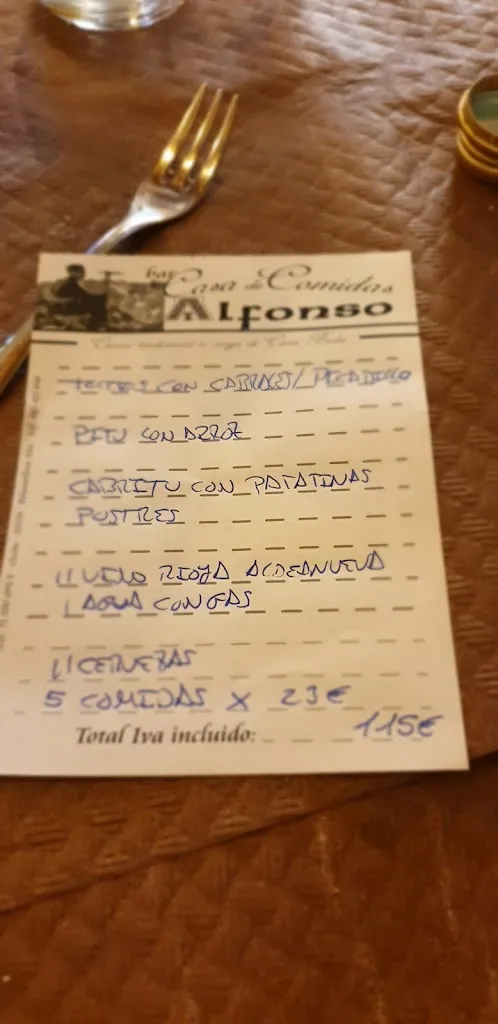 bar
Casa de Comidas
Alfonso
CON CABRALES/ PICADILLO
PITU CON ARROZ
CABRITU CON PATATINAS
POSTRES
VINO RIOJA ALDEANUEVA
1 AGUA CON GAS
CERVEZAS
5 COMIDAS x 23€
Total Iva incluido: 115€